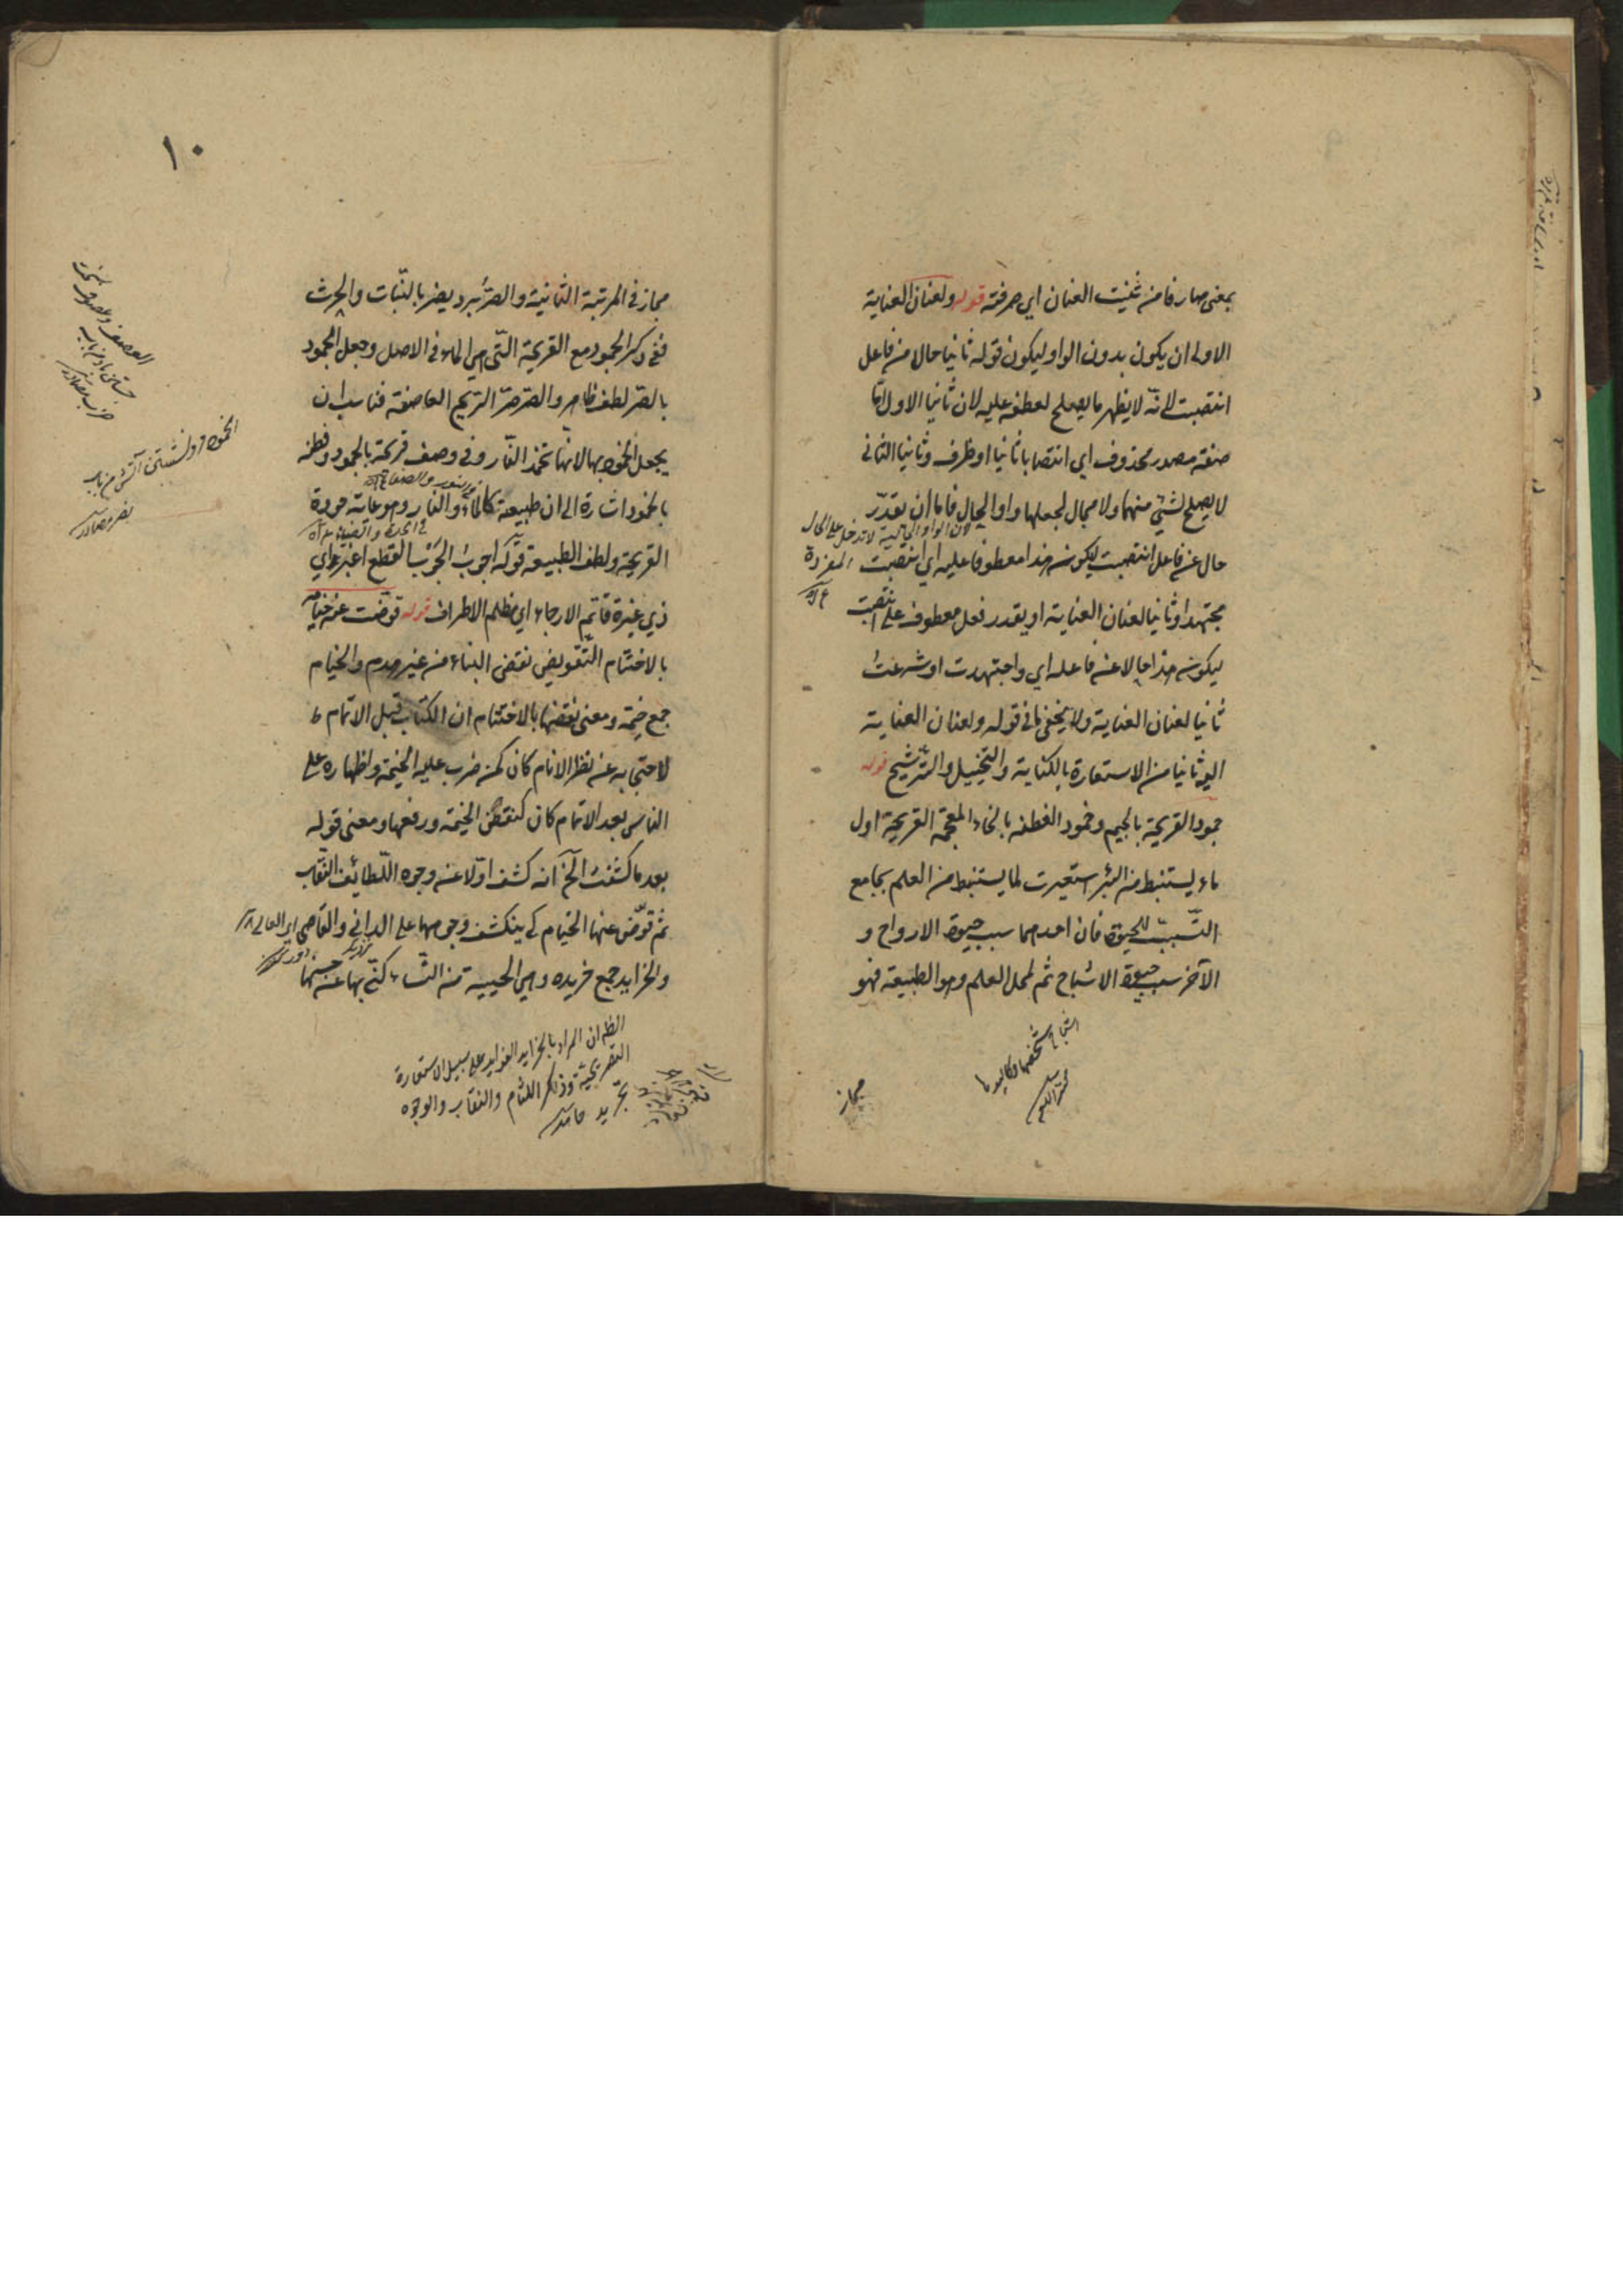 بمعنى صارفا من ثنيت العنان اي صرفته قوله ولعنان العناية
الاولى ان يكون بدون الواو ليكون قوله ثانيا حالا من فاعل
انتصبت لانّه لا يظهر ما يصلح لعطفه عليه لان ثانيا الاول امّا
صفة مصدر محذوف اي انتصابا ثانيا او ظرف وثانيا الثاني
لا يصلح لشئ منهما ولا مجال لجعلها واو الحال فاما ان يقدّر
لان الواو الحالية لا تدخل على الحال
المفردة
حال عن فاعل انتصبت ليكون هذا معطوفا عليه اي انتصبت
مجتهدا وثانيا لعنان العناية او يقدر فعل معطوف على انتصبت
ليكون هذا حالا عن فاعله اي واجتهدت او شرعت
ثانيا لعنان العناية ولا يخفى ما في قوله ولعنان العناية
ثانيا من الاستعارة بالكناية والتخييل والترشيح قوله
جمود القريحة بالجيم وخمود الفطنة بالخاء المعجمة القريحة اول
ماء يستنبط من البئر استعيرت لما يستنبط من العلم بجامع
التّسبّب للحيوة فان احدهما سبب حيوة الارواح و
الآخر سبب حيوة الاشباح ثم لمحل العلم وهو الطبيعة فهو
مجاز
١٠
مجاز في المرتبة الثانية والصّرّ برد يضر بالنّبات والحرث
ففي ذكر الجمود مع القريحة الّتي هي الماء في الاصل وجعل الجمود
بالصّر لطف ظاهر والصّرصر الرّيح العاصفة فناسب ان
يجعل الخمود بها لانّها تخمد النّار وفي وصف قريحة بالجمود وفطنه
بالخمود اشارة الى ان طبيعة كالماء والنار وهو غاية جودة
القريحة ولطف الطبيعة قوله اجوب الجَوْب القطع اغبر اي
ذي غبرة قاتم الارجاء اي مظلم الاطراف قوله قوّضت عنه خيامه
بالاختتام التّقويض نقض البناء من غير هدم والخيام
جمع خيمة ومعنى نقضها بالاختتام ان الكتاب قبل الاتمام
لاحتجابه عن نظر الانام كان كمن ضرب عليه الخيمة واظهاره على
الناس بعد الاتمام كان كنقض الخيمة ورفعها ومعنى قوله
بعد ما كشفت الخ انه كشف اوّلا عنه وجوه اللّطائف النّقاب
ثم قوّض عنها الخيام كي ينكشف وجوهها على الداني والقاصي
والخرايد جمع خريده وهي الحييية من النّساء كنّي بها عن حسنها
الظ ان المراد بالخرايد الفوايد على سبيل الاستعارة
التصريحية وذكر اللثام والنقاب والوجوه
تجريد